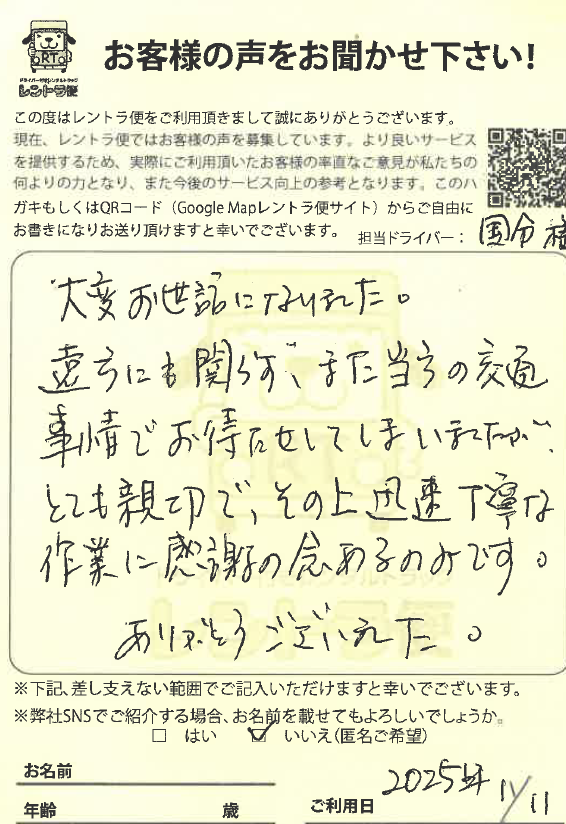 RT
ドライバー付きレンタルトラック
レントラ便
お客様の声をお聞かせ下さい!
この度はレントラ便をご利用頂きまして誠にありがとうございます。
現在、レントラ便ではお客様の声を募集しています。より良いサービス
を提供するため、実際にご利用頂いたお客様の率直なご意見が私たちの
何よりの力となり、また今後のサービス向上の参考となります。このハ
ガキもしくはQRコード(Google Mapレントラ便サイト)からご自由に
お書きになりお送り頂けますと幸いでございます。
担当ドライバー: 国分 様
大変お世話になりました。
遠方にも関らず、また当方の交通
事情でお待たせしてしまいましたが、
とても親切で、その上迅速丁寧な
作業に感謝の念あるのみです。
ありがとうございました。
※下記、差し支えない範囲でご記入いただけますと幸いでございます。
※弊社SNSでご紹介する場合、お名前を載せてもよろしいでしょうか。
□ はい ☑ いいえ(匿名ご希望)
お名前
年齢 歳
ご利用日 2025年 11/11